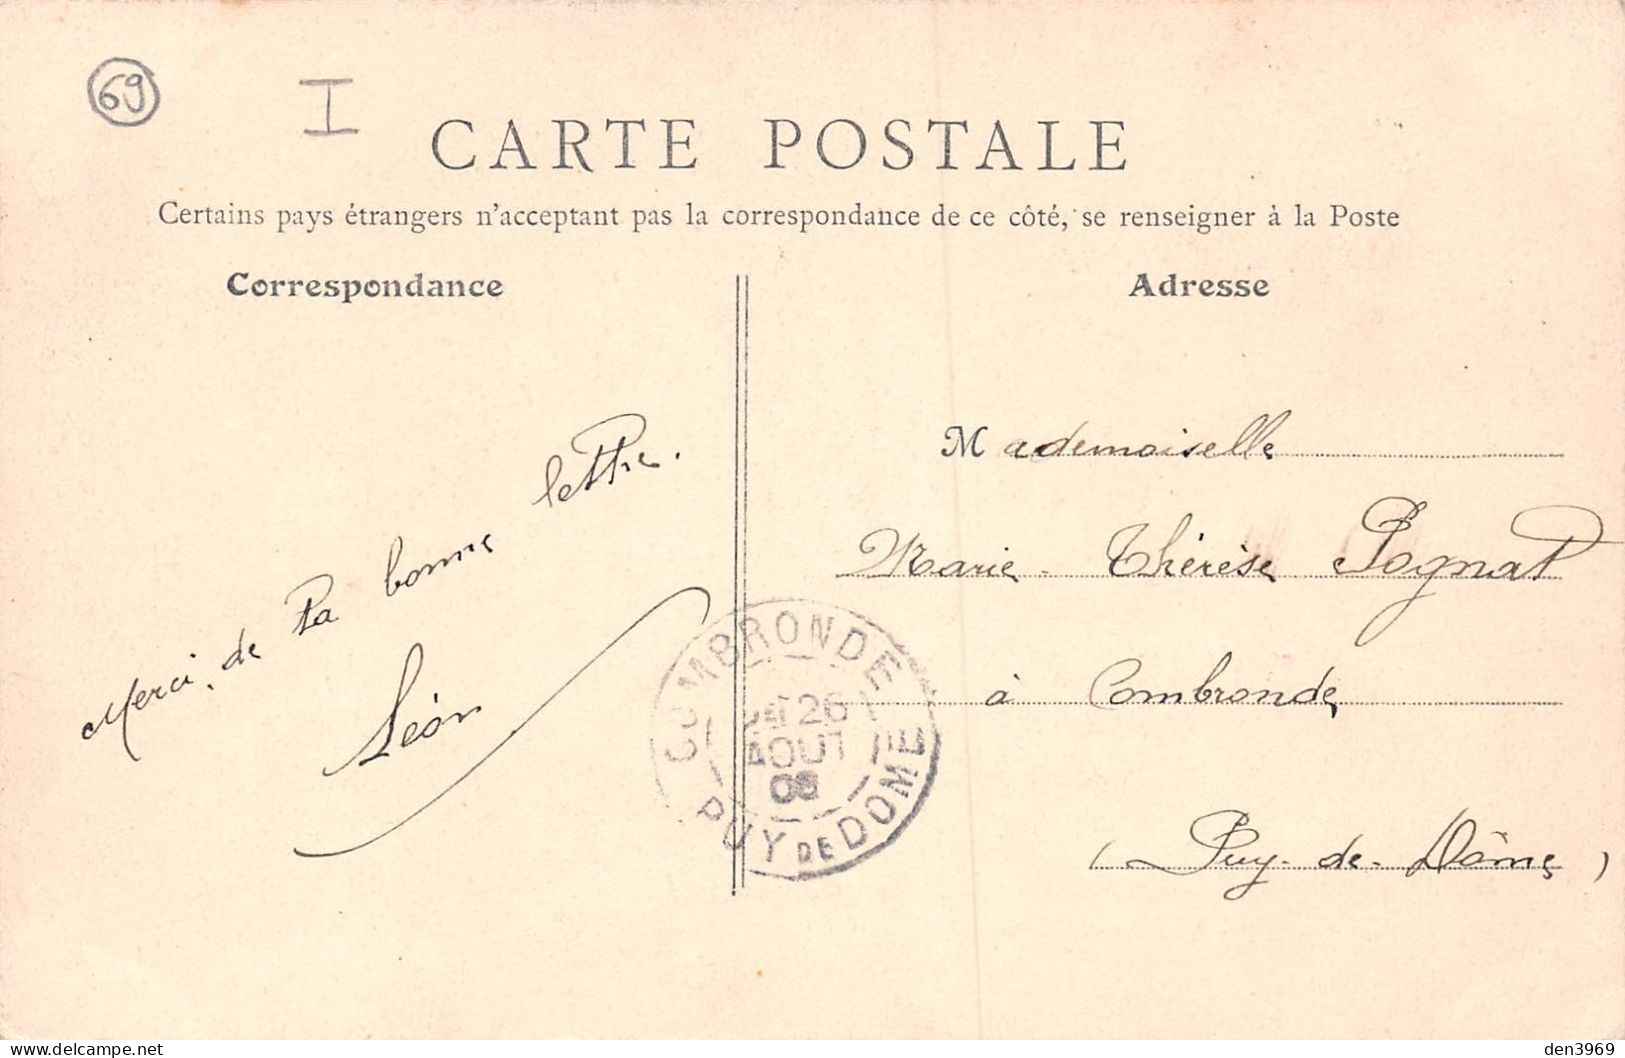 69
I
CARTE POSTALE
Certains pays étrangers n'acceptant pas la correspondance de ce côté, se renseigner à la Poste
Correspondance
Adresse
Merci, de ta bonne lettre.
Léon
Mademoiselle
Marie-Thérèse Pognat
à Combronde
(Puy-de-Dôme)
COMBRONDE
26
AOUT
PUY DE DOME
den3969